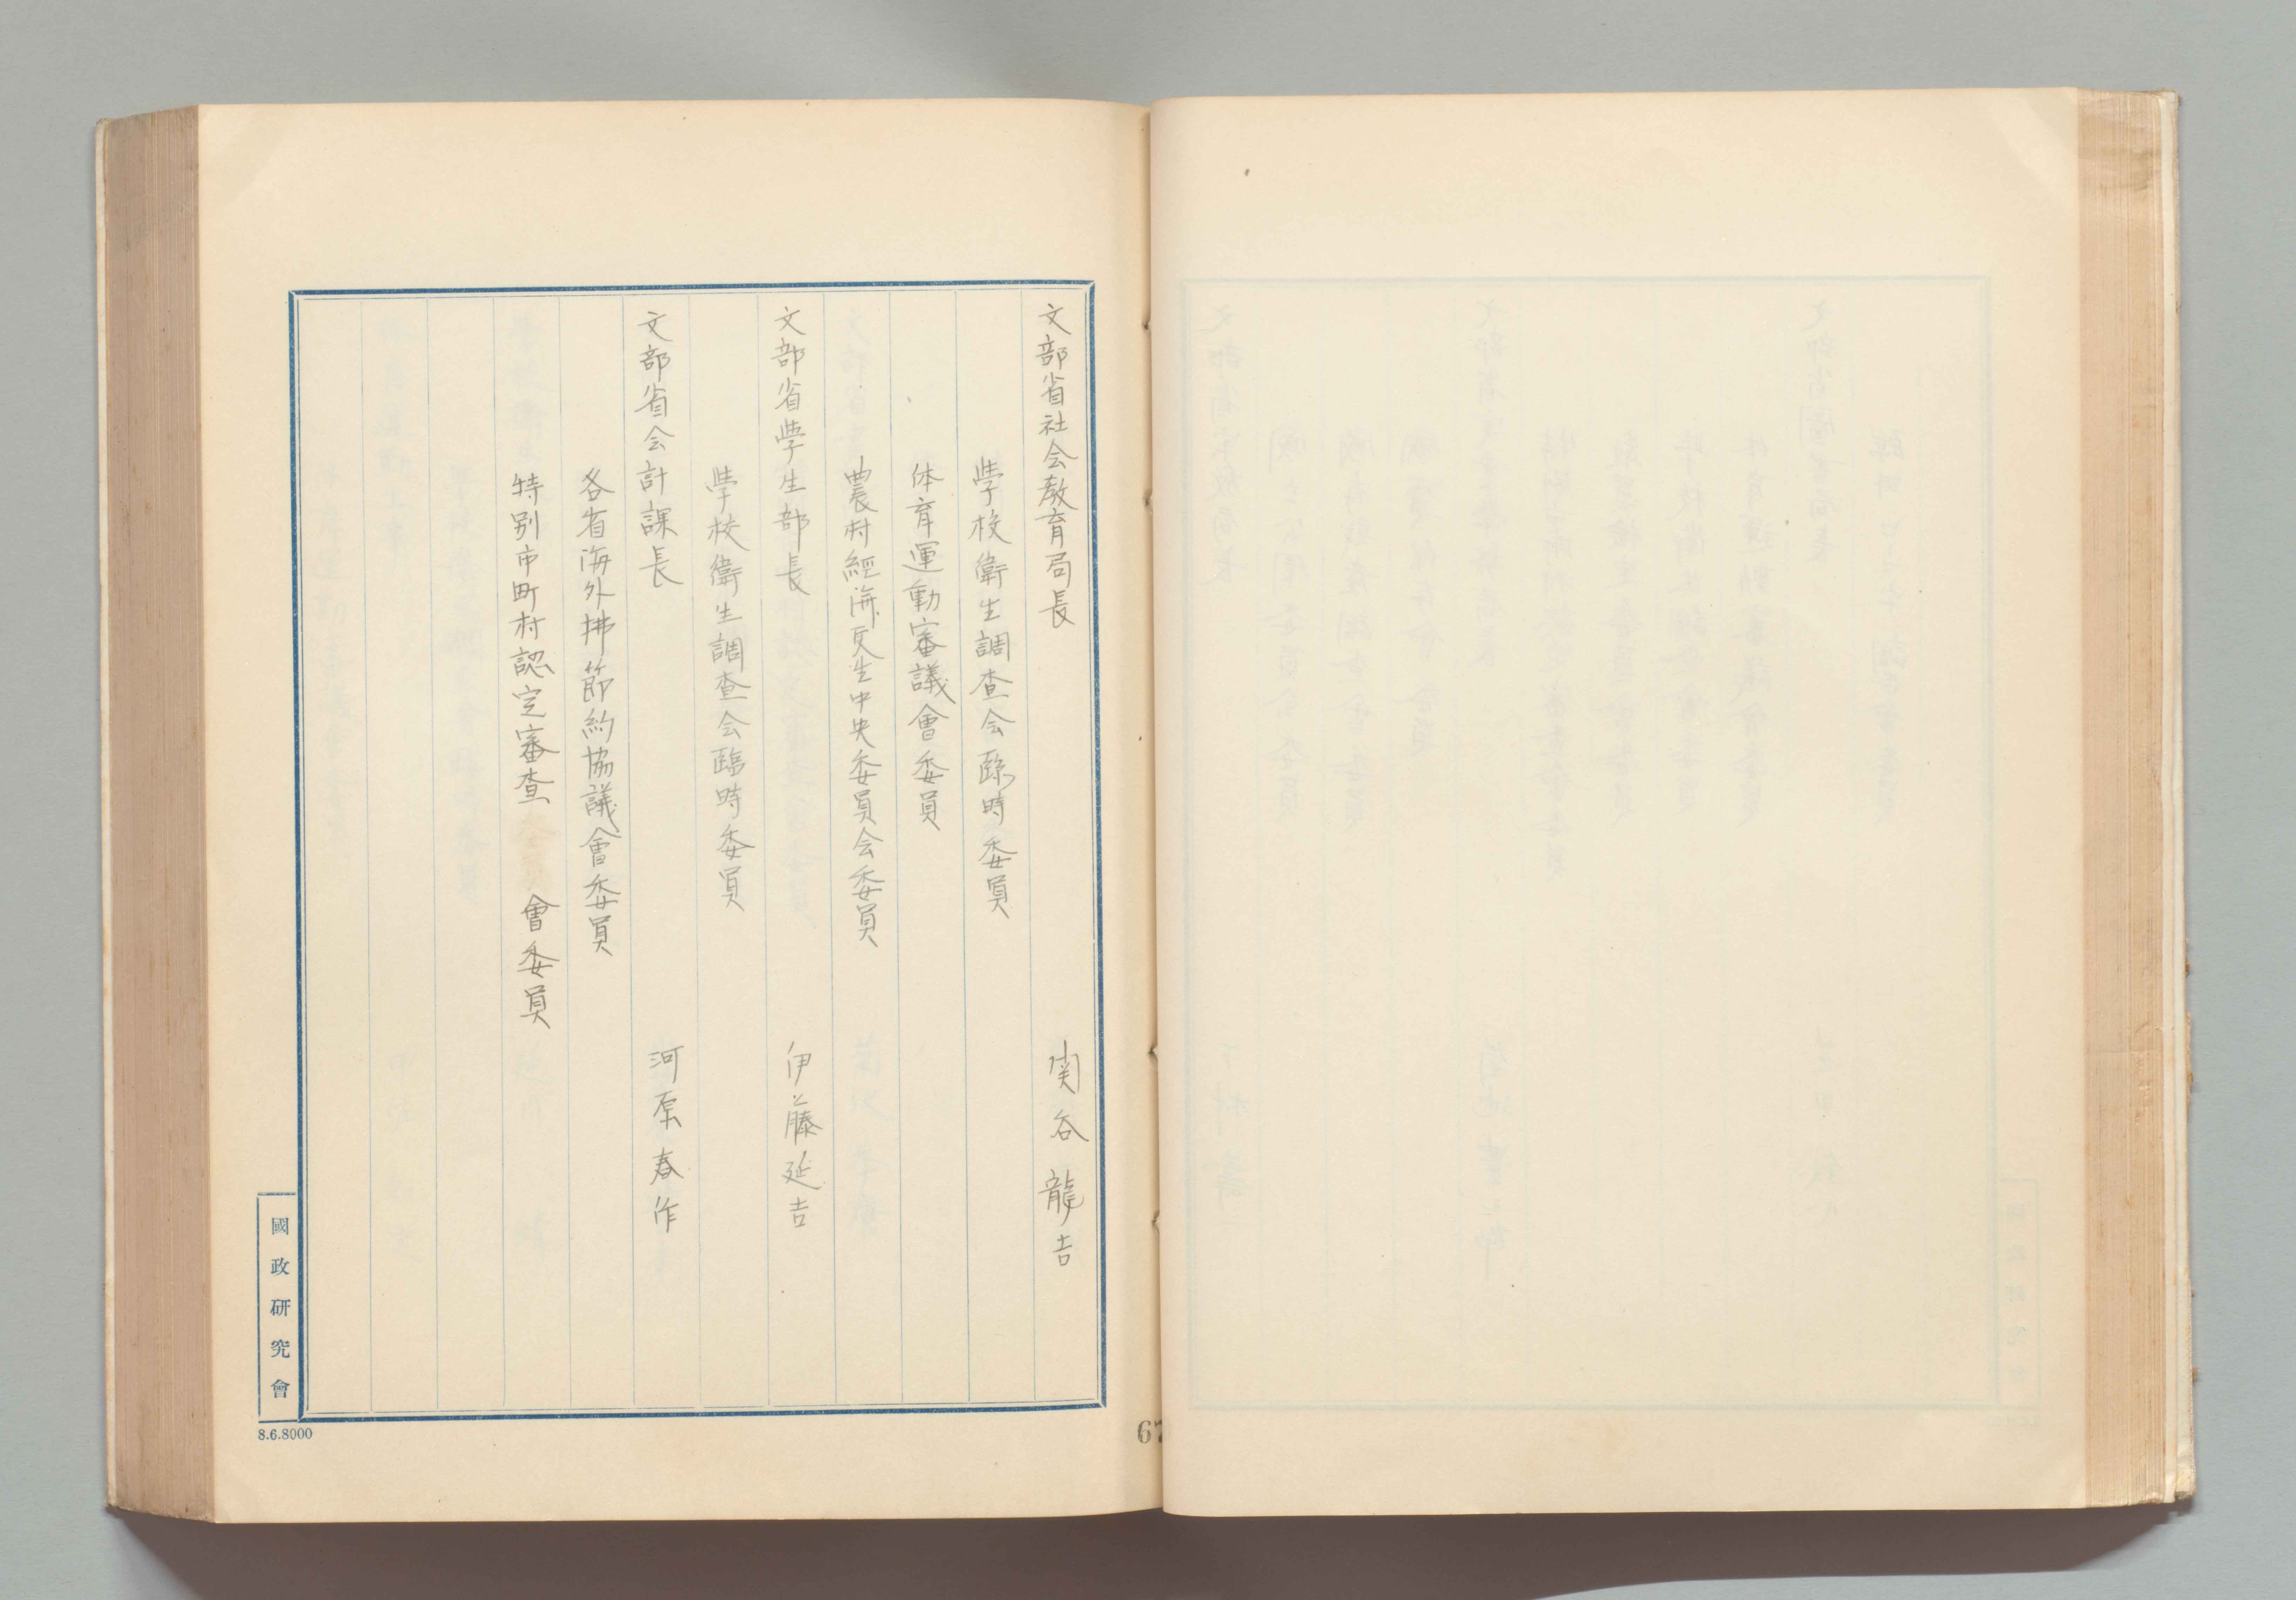 文部省社会教育局長　関谷龍吉
学校衛生調査会臨時委員
体育運動審議會委員
農村経済更生中央委員会委員
文部省学生部長　伊藤延吉
学校衛生調査会臨時委員
文部省会計課長　河原春作
各省海外拂節約協議會委員
特別市町村認定審査會委員
國政研究會
8.6.8000
67